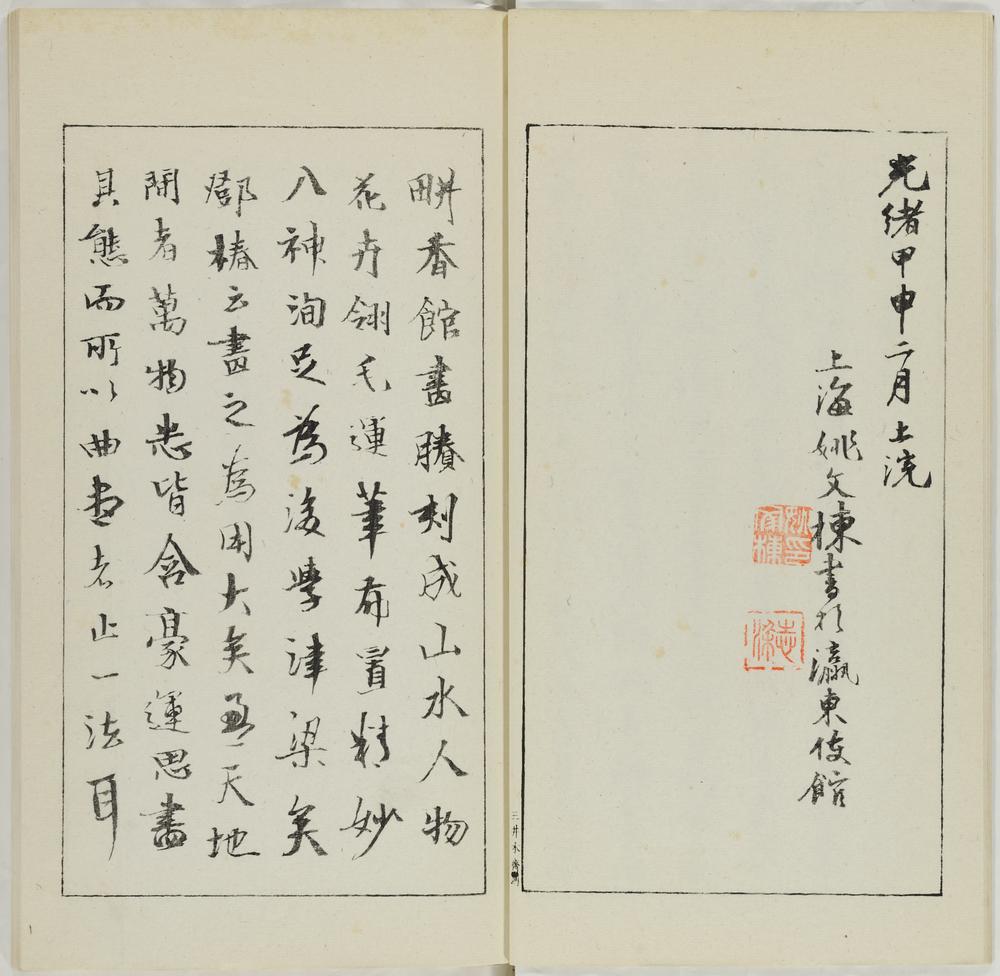 光緒甲申二月上浣
上海姚文棟書於瀛東使館
姚印文棟
志梁
畊香館畫賸刻成山水人物
花卉翎毛運筆布置精妙
入神洵足為後學津梁矣
鄧椿云畫之為用大矣盈天地
間者萬物悉皆含豪運思畫
其態而所以曲盡者止一法耳
三井永濟寫